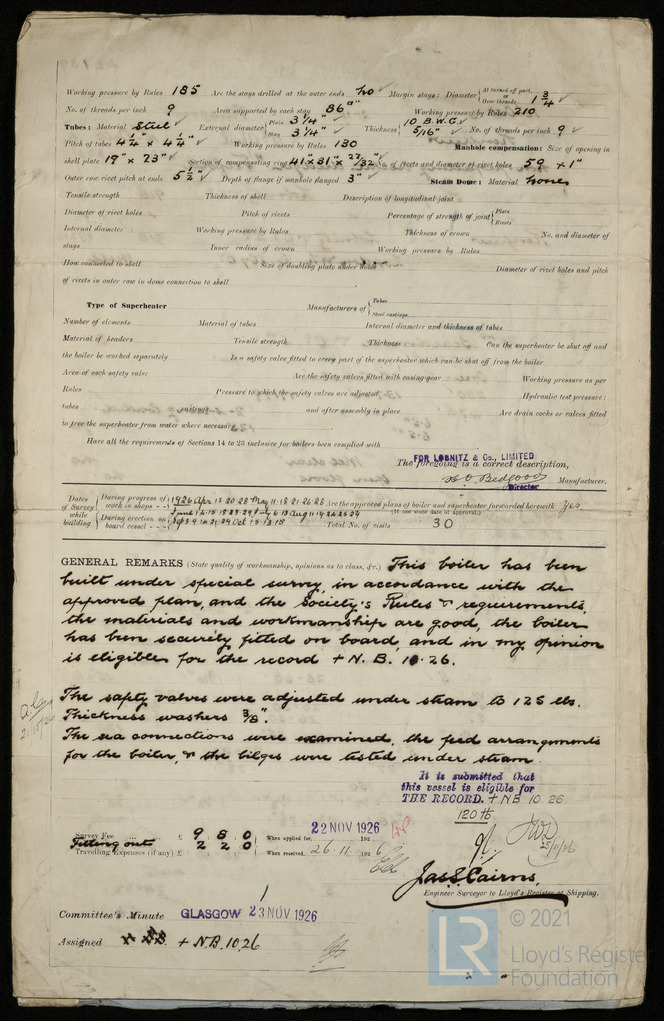 Working pressure by Rules 185 Are the stays drilled at the outer ends No Margin stays: Diameter { At turned off part, or Over threads 1 3/4
No. of threads per inch 9 Area supported by each stay 86"" Working pressure by Rules 210
Tubes: Material Steel External diameter { Plain 3 1/4" Stay 3 1/4" Thickness { 10 B.W.G. 5/16" No. of threads per inch 9
Pitch of tubes 4 1/4" x 4 1/4" Working pressure by Rules 130 Manhole compensation: Size of opening in
shell plate 19" x 23" Section of compensating ring 41 x 31" x 27/32 No. of rivets and diameter of rivet holes 59 + 1"
Outer row rivet pitch at ends 5 1/2" Depth of flange if manhole flanged 3" Steam Dome: Material none
Tensile strength Thickness of shell Description of longitudinal joint
Diameter of rivet holes Pitch of rivets Percentage of strength of joint { Plate Rivets
Internal diameter Working pressure by Rules Thickness of crown No. and diameter of
stays Inner radius of crown Working pressure by Rules
How connected to shell Size of doubling plate under dome Diameter of rivet holes and pitch
of rivets in outer row in dome connection to shell
Type of Superheater Manufacturers of { Tubes Steel castings
Number of elements Material of tubes Internal diameter and thickness of tubes
Material of headers Tensile strength Thickness Can the superheater be shut off and
the boiler be worked separately Is a safety valve fitted to every part of the superheater which can be shut off from the boiler
Area of each safety valve Are the safety valves fitted with easing gear Working pressure as per
Rules Pressure to which the safety valves are adjusted Hydraulic test pressure:
tubes castings and after assembly in place Are drain cocks or valves fitted
to free the superheater from water where necessary
Have all the requirements of Sections 14 to 23 inclusive for boilers been complied with
FOR LOBNITZ & Co., LIMITED
The foregoing is a correct description,
Director Manufacturer.
Dates of Survey while building { During progress of work in shops - - 1926 Apr 13 20 28 May 11 18 21 26 28 Are the approved plans of boiler and superheater forwarded herewith Yes
(If not state date of approval.)
During erection on board vessel - - - Total No. of visits 30
GENERAL REMARKS (State quality of workmanship, opinions as to class, &c.) This boiler has been
built under special survey in accordance with the
approved plan, and the Society's Rules & requirements,
the materials and workmanship are good, the boiler
has been securely fitted on board, and in my opinion
is eligible for the record + N.B. 10.26.
The safety valves were adjusted under steam to 125 lbs.
Thickness washers 3/8".
The sea connections were examined, the feed arrangements
for the boiler, & the bilges were tested under steam.
It is submitted that
this vessel is eligible for
THE RECORD. + NB 10.26
120 lb
25/11/26
Survey Fee ... £ 9 8 0 When applied for, 22 NOV 1926
Fitting out
Travelling Expenses (if any) £ 2 2 0 When received, 26.11 1926
Jas. S. Cairns,
Engineer Surveyor to Lloyd's Register of Shipping.
Committee's Minute GLASGOW 23 NOV 1926
Assigned + N.B. 10,26
© 2021
LR Lloyd's Register
Foundation